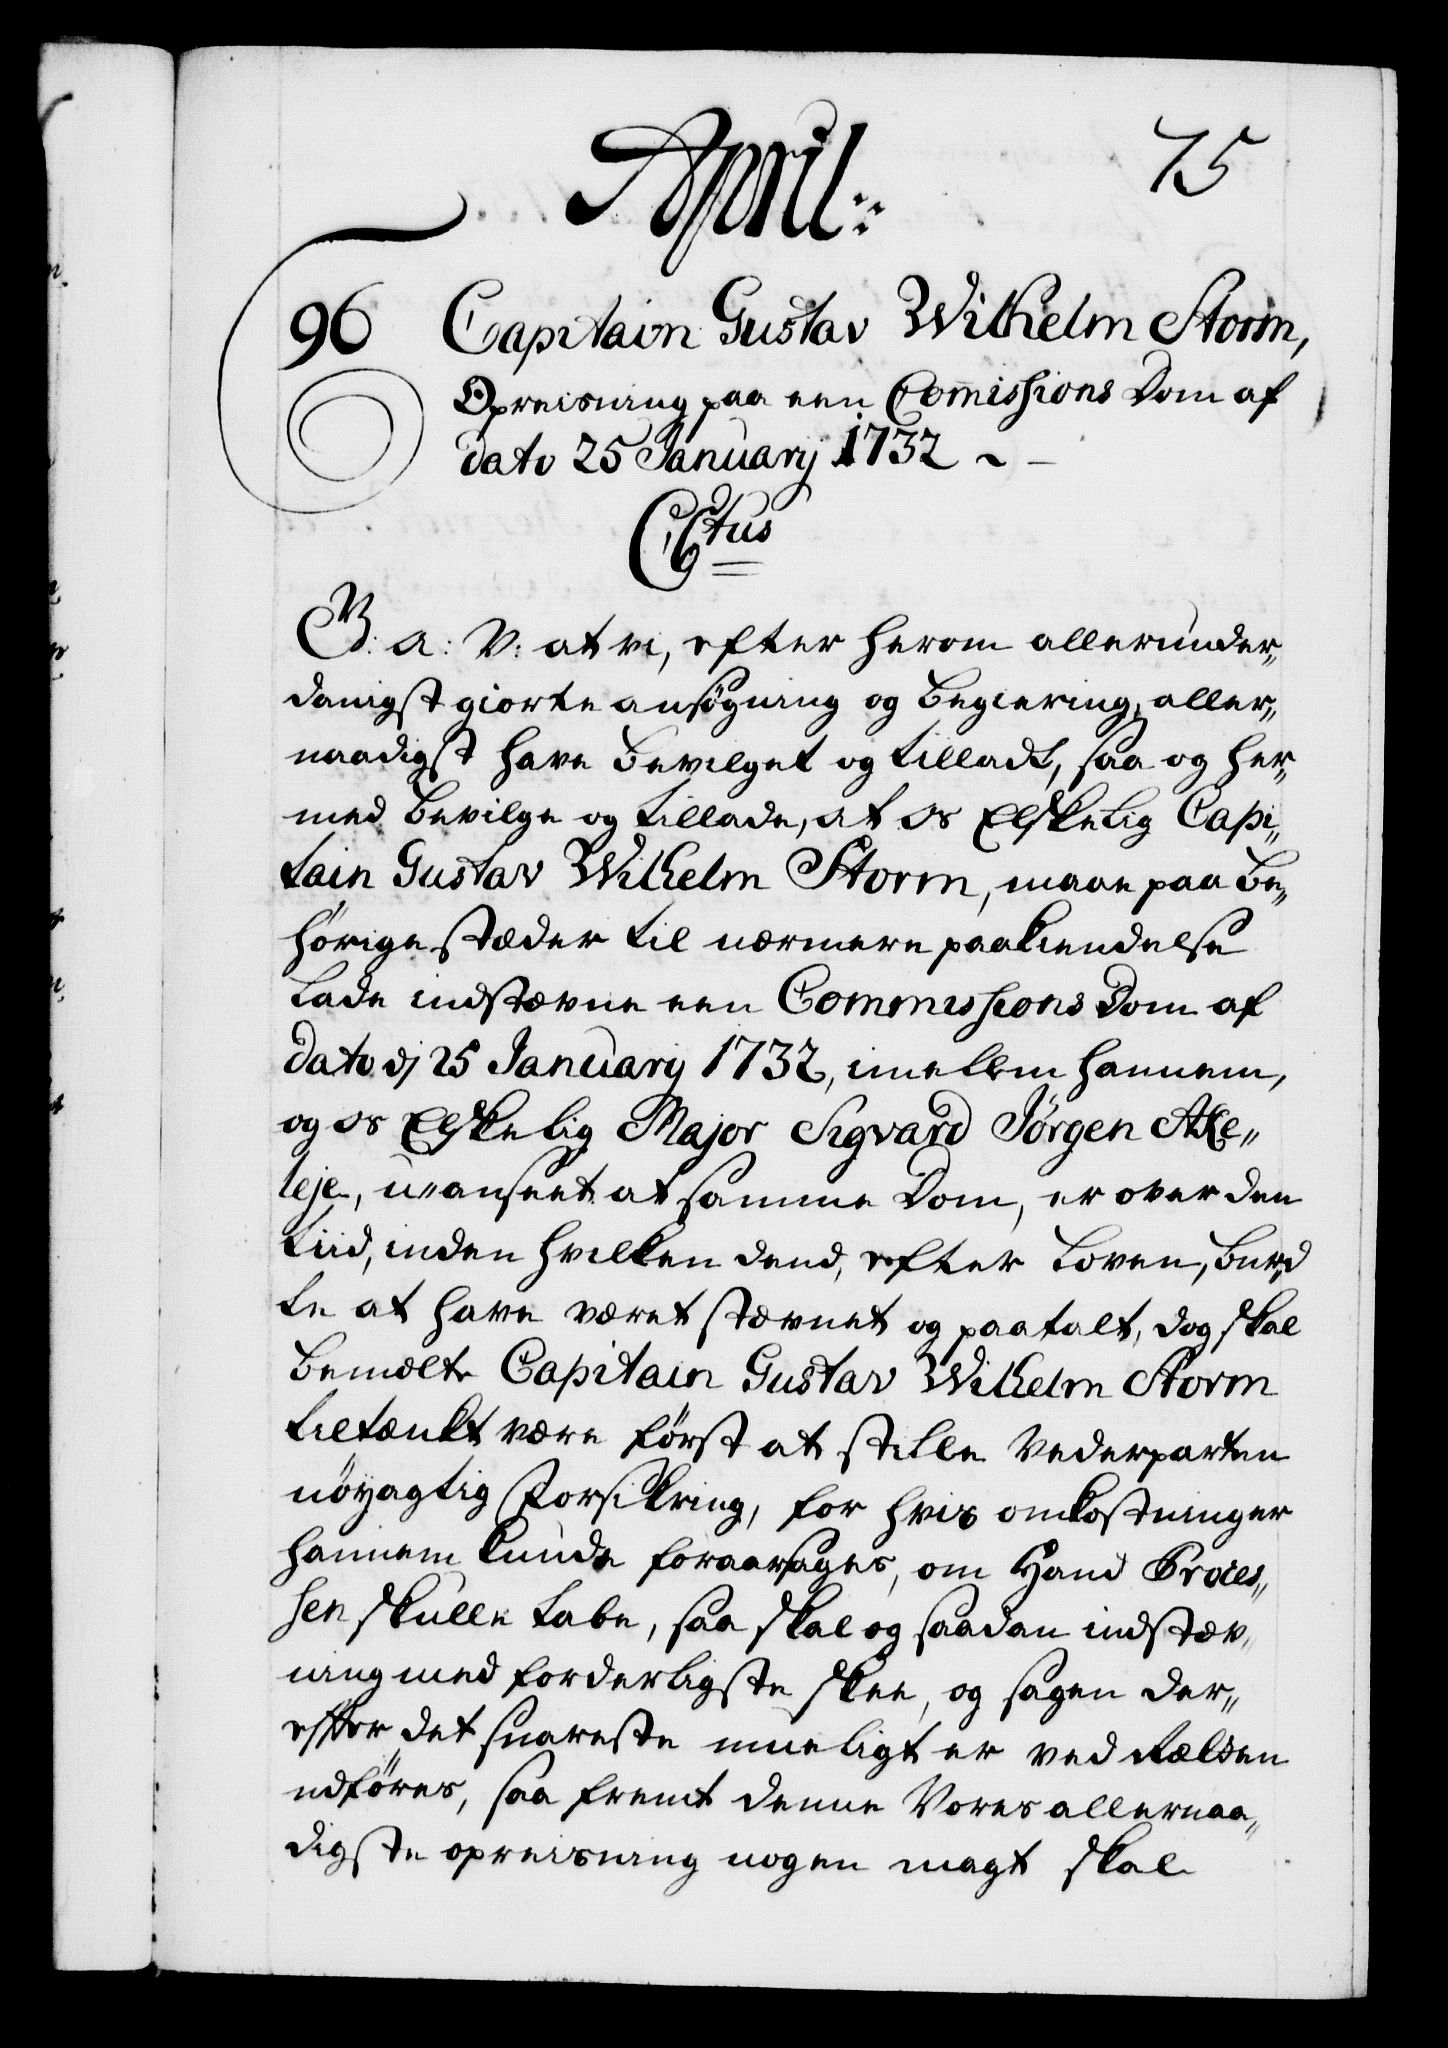 April:
75
96 Capitain Gustav Wilhelm Storm,
Opreisning paa een Comissions Dom af
dato 25 Januarij 1732
C 6tus
G: A: V: at vi, efter herom allerunder„
danigst giorte ansøgning og begiering, aller„
naadigst have bevilget og tilladt, saa og her„
med bevilge og tillade, at os Elskelig Capi„
tain Gustav Wilhelm Storm, maae paa be„
hørige stæder til nærmere paakiendelse
lade indstævne een Commissions Dom af
dato dj 25 Januarij 1732, imellem hannem,
og os Elskelig Major Sigvard Jørgen Ake„
leje, uanseet at samme Dom, er over den
tiid, inden hvilken dend, efter Loven, burd
te at have været stævnet og paatalt, dog skal
bemelte Capitain Gustav Wilhelm Storm
tiltænkt være først at stille Vederparten
nöyagtig Forsikring, for hvis omkostninger
hannem kunde foraarsages, om Hand Proces„
sen skulle tabe, saa skal og saadan indstæv„
ning med forderligste skee, og sagen der„
effter det snareste mueligt er ved Rætten
udføres, saa fremt denne Vores allernaa„
digste opreisning nogen magt skal